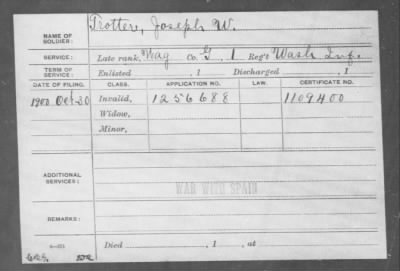 Trotter, Joseph W.
NAME OF SOLDIER:
SERVICE: Late rank, Wag Co. G, 1 Reg't Wash Inf.
TERM OF SERVICE: Enlisted , 1 Discharged , 1
DATE OF FILING. CLASS. APPLICATION NO. LAW. CERTIFICATE NO.
1900 Oct 30 Invalid, 1256688 1109400
Widow,
Minor,
ADDITIONAL SERVICES:
WAR WITH SPAIN
REMARKS:
Died , 1 , at